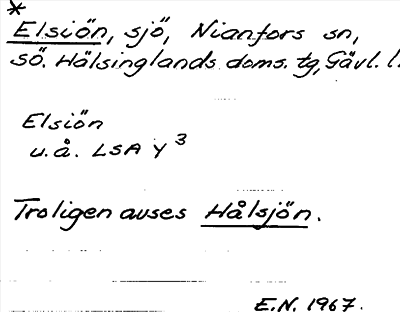 *
Elsiön, sjö, Nianfors sn,
sö. Hälsinglands doms. tg, Gävl. l.
Elsiön
u.å. LSA Y 3
Troligen avses Hålsjön.
E.N. 1967.